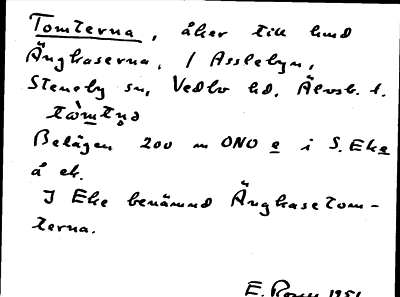 Tomterna, åker till hmd
Ängkaserna, / Asslebyn,
Steneby sn, Vedbo hd, Älvsb. l.
tòmtṇa
Belägen 200 m ONO e i S. Eke
å ek.
I Eke benämnd Ängkasetom-
terna.
E. 1951